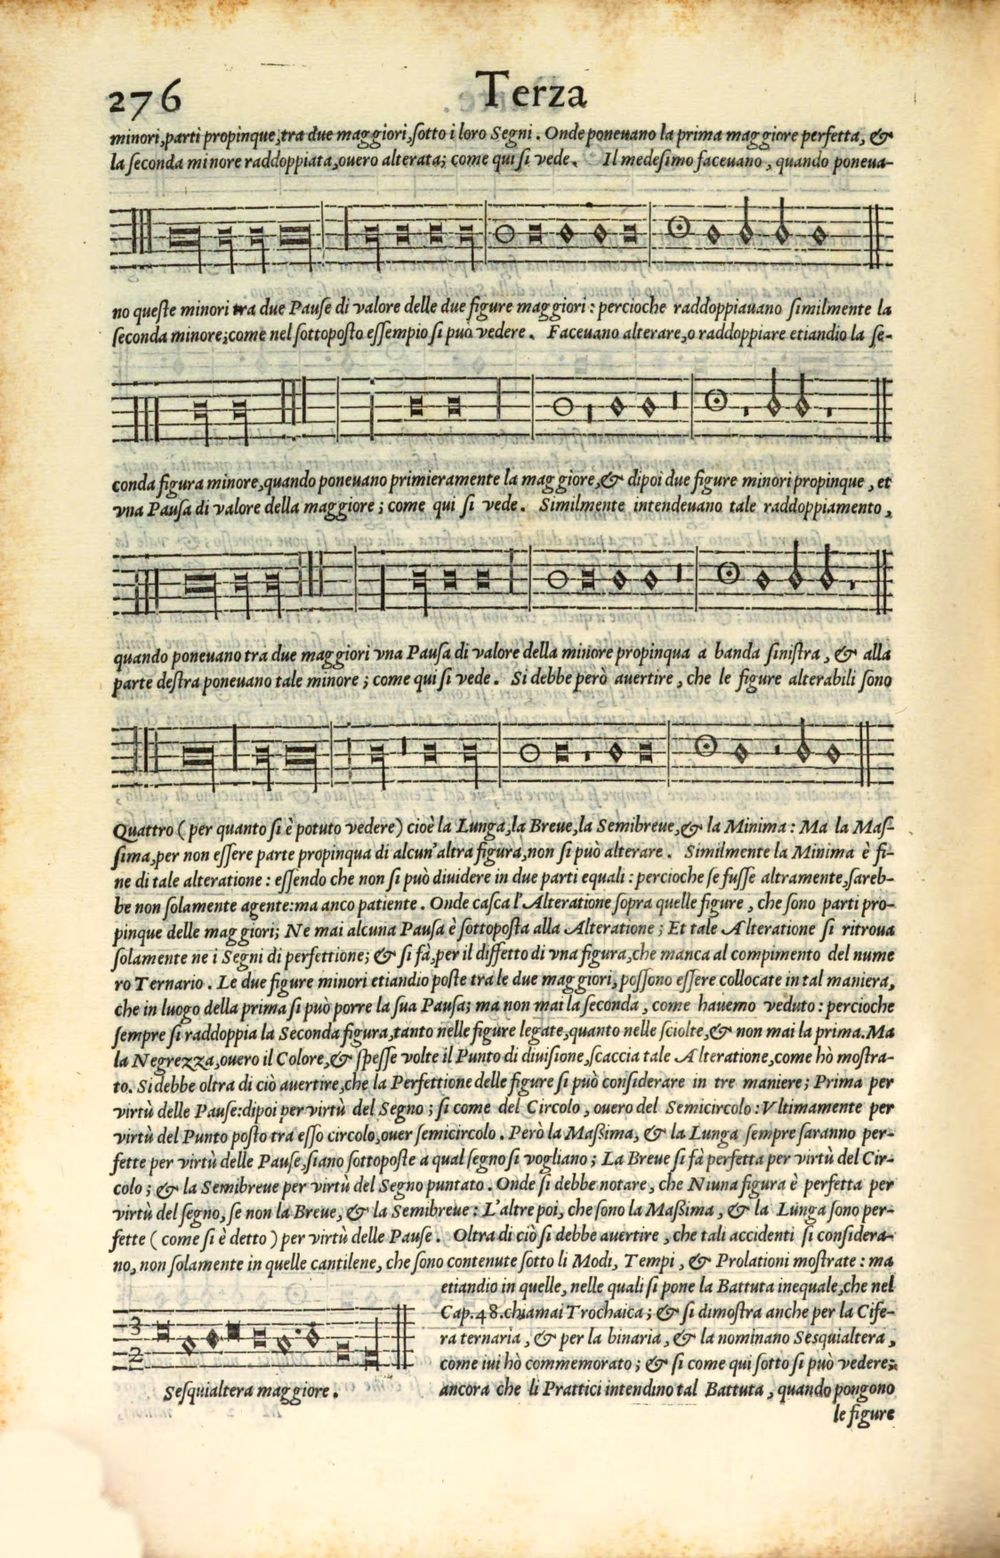 276
Terza
minori, parti propinque, tra due maggiori, ſotto i loro Segni. Onde poneuano la prima maggiore perfetta, &
la ſeconda minore raddoppiata, ouero alterata; come qui ſi vede. Il medeſimo faceuano, quando poneua-
no queſte minori tra due Pauſe di valore delle due figure maggiori: percioche raddoppiauano ſimilmente la
ſeconda minore; come nel ſottopoſto eſſempio ſi può vedere. Faceuano alterare, o raddoppiare etiandio la ſe-
conda figura minore, quando poneuano primieramente la maggiore, & dipoi due figure minori propinque, et
vna Pauſa di valore della maggiore; come qui ſi vede. Similmente intendeuano tale raddoppiamento,
quando poneuano tra due maggiori vna Pauſa di valore della minore propinqua a banda ſiniſtra, & alla
parte deſtra poneuano tale minore; come qui ſi vede. Si debbe però auertire, che le figure alterabili ſono
Quattro (per quanto ſi è potuto vedere) cioè la Lunga, la Breue, la Semibreue, & la Minima: Ma la Maſ-
ſima, per non eſſere parte propinqua di alcun'altra figura, non ſi può alterare. Similmente la Minima è fi-
ne di tale alteratione: eſſendo che non ſi può diuidere in due parti equali: percioche ſe fuſſe altramente, ſareb-
be non ſolamente agente: ma anco patiente. Onde caſca l'Alteratione ſopra quelle figure, che ſono parti pro-
pinque delle maggiori; Ne mai alcuna Pauſa è ſottopoſta alla Alteratione; Et tale Alteratione ſi ritroua
ſolamente ne i Segni di perfettione; & ſi fà, per il diffetto di vna figura, che manca al compimento del nume
ro Ternario. Le due figure minori etiandio poſte tra le due maggiori, poſſono eſſere collocate in tal maniera,
che in luogo della prima ſi può porre la ſua Pauſa; ma non mai la ſeconda, come hauemo veduto: percioche
ſempre ſi raddoppia la Seconda figura, tanto nelle figure legate, quanto nelle ſciolte, & non mai la prima. Ma
la Negrezza, ouero il Colore, & ſpeſſe volte il Punto di diuiſione, ſcaccia tale Alteratione, come hò moſtra-
to. Si debbe oltra di ciò auertire, che la Perfettione delle figure ſi può conſiderare in tre maniere; Prima per
virtù delle Pauſe: dipoi per virtù del Segno; ſi come del Circolo, ouero del Semicircolo: Vltimamente per
virtù del Punto poſto tra eſſo circolo, ouer ſemicircolo. Però la Maßima, & la Lunga ſempre ſaranno per-
fette per virtù delle Pauſe, ſiano ſottopoſte a qual ſegno ſi vogliano; La Breue ſi fà perfetta per virtù del Cir-
colo; & la Semibreue per virtù del Segno puntato. Onde ſi debbe notare, che Niuna figura è perfetta per
virtù del ſegno, ſe non la Breue, & la Semibreue: L'altre poi, che ſono la Maßima, & la Lunga ſono per-
fette (come ſi è detto) per virtù delle Pauſe. Oltra di ciò ſi debbe auertire, che tali accidenti ſi conſidera-
no, non ſolamente in quelle cantilene, che ſono contenute ſotto li Modi, Tempi, & Prolationi moſtrate: ma
etiandio in quelle, nelle quali ſi pone la Battuta inequale, che nel
Cap. 48. chiamai Trochaica; & ſi dimoſtra anche per la Cife-
ra ternaria, & per la binaria, & la nominano Sesquialtera,
come iui hò commemorato; & ſi come qui ſotto ſi può vedere;
ancora che li Prattici intendino tal Battuta, quando pongono
3
2
Sesquialtera maggiore.
le figure